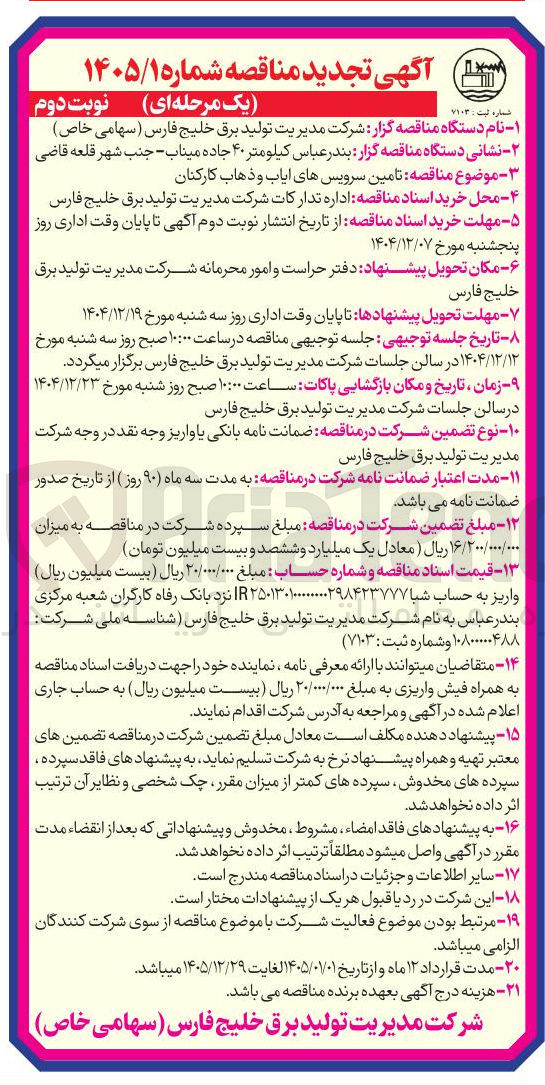 آگهی تجدید مناقصه شماره ۱۴۰۵/۱
(یک مرحله‌ای) نوبت دوم
شماره ثبت : ۷۱۰۳
۱-نام دستگاه مناقصه گزار : شرکت مدیریت تولید برق خلیج فارس (سهامی خاص)
۲-نشانی دستگاه مناقصه گزار : بندرعباس کیلومتر ۴۰ جاده میناب- جنب شهر قلعه قاضی
۳-موضوع مناقصه : تامین سرویس های ایاب و ذهاب کارکنان
۴-محل خرید اسناد مناقصه : اداره تدارکات شرکت مدیریت تولید برق خلیج فارس
۵-مهلت خرید اسناد مناقصه : از تاریخ انتشار نوبت دوم آگهی تا پایان وقت اداری روز
پنجشنبه مورخ ۱۴۰۴/۱۲/۰۷
۶-مکان تحویل پیشنهاد : دفتر حراست و امور محرمانه شرکت مدیریت تولید برق
خلیج فارس
۷-مهلت تحویل پیشنهادها : تا پایان وقت اداری روز سه شنبه مورخ ۱۴۰۴/۱۲/۱۹
۸-تاریخ جلسه توجیهی : جلسه توجیهی مناقصه درساعت ۱۰:۰۰ صبح روز سه شنبه مورخ
۱۴۰۴/۱۲/۱۲ در سالن جلسات شرکت مدیریت تولید برق خلیج فارس برگزار میگردد.
۹-زمان ، تاریخ و مکان بازگشایی پاکات : ساعت ۱۰:۰۰ صبح روز شنبه مورخ ۱۴۰۴/۱۲/۲۳
درسالن جلسات شرکت مدیریت تولید برق خلیج فارس
۱۰-نوع تضمین شرکت درمناقصه : ضمانت نامه بانکی یا واریز وجه نقد در وجه شرکت
مدیریت تولید برق خلیج فارس
۱۱-مدت اعتبار ضمانت نامه شرکت درمناقصه : به مدت سه ماه (۹۰ روز) از تاریخ صدور
ضمانت نامه می باشد.
۱۲-مبلغ تضمین شرکت درمناقصه : مبلغ سپرده شرکت در مناقصه به میزان
۱۶/۲۰۰/۰۰۰/۰۰۰ ریال ( معادل یک میلیارد و ششصد و بیست میلیون تومان )
۱۳-قیمت اسناد مناقصه و شماره حساب : مبلغ ۲۰/۰۰۰/۰۰۰ ریال (بیست میلیون ریال)
واریز به حساب شبا IR۲۵۰۱۳۰۱۰۰۰۰۰۰۰۰۲۹۸۴۲۳۷۷۷ نزد بانک رفاه کارگران شعبه مرکزی
بندرعباس به نام شرکت مدیریت تولید برق خلیج فارس (شناسه ملی شرکت :
۱۰۸۰۰۰۰۰۴۸۸ و شماره ثبت : ۷۱۰۳)
۱۴-متقاضیان میتوانند با ارائه معرفی نامه ، نماینده خود را جهت دریافت اسناد مناقصه
به همراه فیش واریزی به مبلغ ۲۰/۰۰۰/۰۰۰ ریال (بیست میلیون ریال) به حساب جاری
اعلام شده در آگهی و مراجعه به آدرس شرکت اقدام نمایند.
۱۵-پیشنهاد دهنده مکلف است معادل مبلغ تضمین شرکت درمناقصه تضمین های
معتبر تهیه و همراه پیشنهاد نرخ به شرکت تسلیم نماید، به پیشنهاد های فاقد سپرده ،
سپرده های مخدوش ، سپرده های کمتر از میزان مقرر ، چک شخصی و نظایر آن ترتیب
اثر داده نخواهد شد.
۱۶-به پیشنهادهای فاقد امضاء ، مشروط ، مخدوش و پیشنهاداتی که بعد از انقضاء مدت
مقرر در آگهی واصل میشود مطلقاً ترتیب اثر داده نخواهد شد.
۱۷-سایر اطلاعات و جزئیات در اسناد مناقصه مندرج است.
۱۸-این شرکت در رد یا قبول هر یک از پیشنهادات مختار است.
۱۹-مرتبط بودن موضوع فعالیت شرکت با موضوع مناقصه از سوی شرکت کنندگان
الزامی میباشد.
۲۰-مدت قرارداد ۱۲ ماه و از تاریخ ۱۴۰۵/۰۱/۰۱ لغایت ۱۴۰۵/۱۲/۲۹ میباشد.
۲۱-هزینه درج آگهی بعهده برنده مناقصه می باشد.
شرکت مدیریت تولید برق خلیج فارس (سهامی خاص)